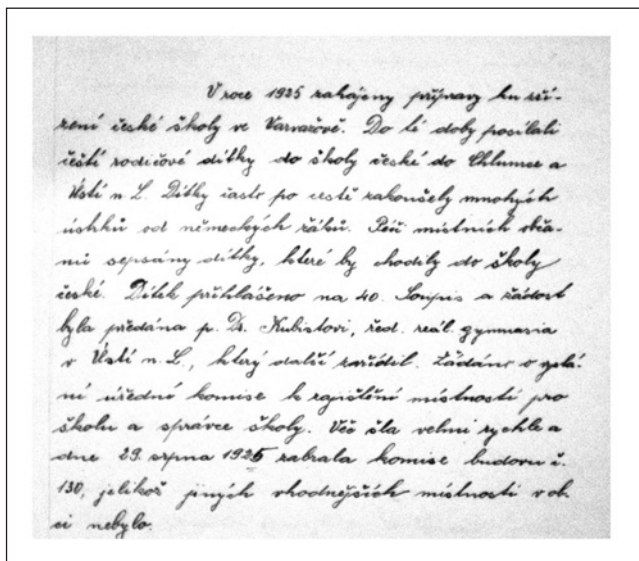 V roce 1925 zahájeny přípravy ku zří-
zení české školy ve Varvažově. Do té doby posílali
čeští rodičové dítky do školy české do Chlumce a
Ústí n. L. Dítky často po cestě zakoušely mnohých
úštků od německých žáků. Péčí místních obča-
nů sepsány dítky, které by chodily do školy
české. Dítek přihlášeno na 40. Soupis a žádost
byla předána p. Dr. Kubistovi, řed. reál. gymnasia
v Ústí n. L., který další zařídil. Žádáno o vyslá-
ní úřední komise k zajištění místností pro
školu a správce školy. Věc šla velmi rychle a
dne 29. srpna 1925 zabrala komise budovu č.
130, jelikož jiných vhodnějších místností v ob-
ci nebylo.